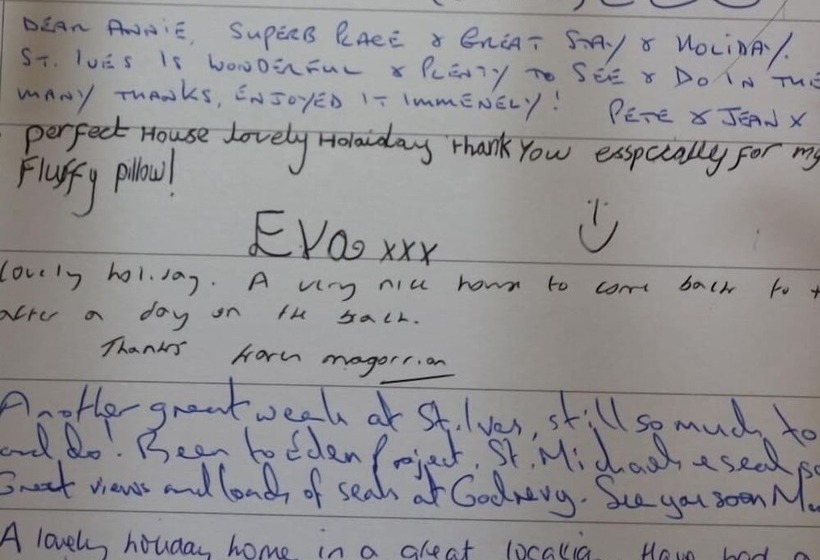 DEAR ANNIE, SUPERB PLACE & GREAT STAY & HOLIDAY.
ST. IVES IS WONDERFUL & PLENTY TO SEE & DO IN THE
MANY THANKS, ENJOYED IT IMMENELY! PETE & JEAN X
perfect House lovely Holaiday thank You esspcially for my
Fluffy pillow!
Eva xxx
lovely holiday. A very nice house to come back to
after a day on the
Thanks Karen magorrian
Another great week at St. Ives, still so much to
and do! Been to Eden Project, St. Michaels & seal
Great views and loads of seals at Godrevy. See you soon
A lovely holiday home in a great Have had a